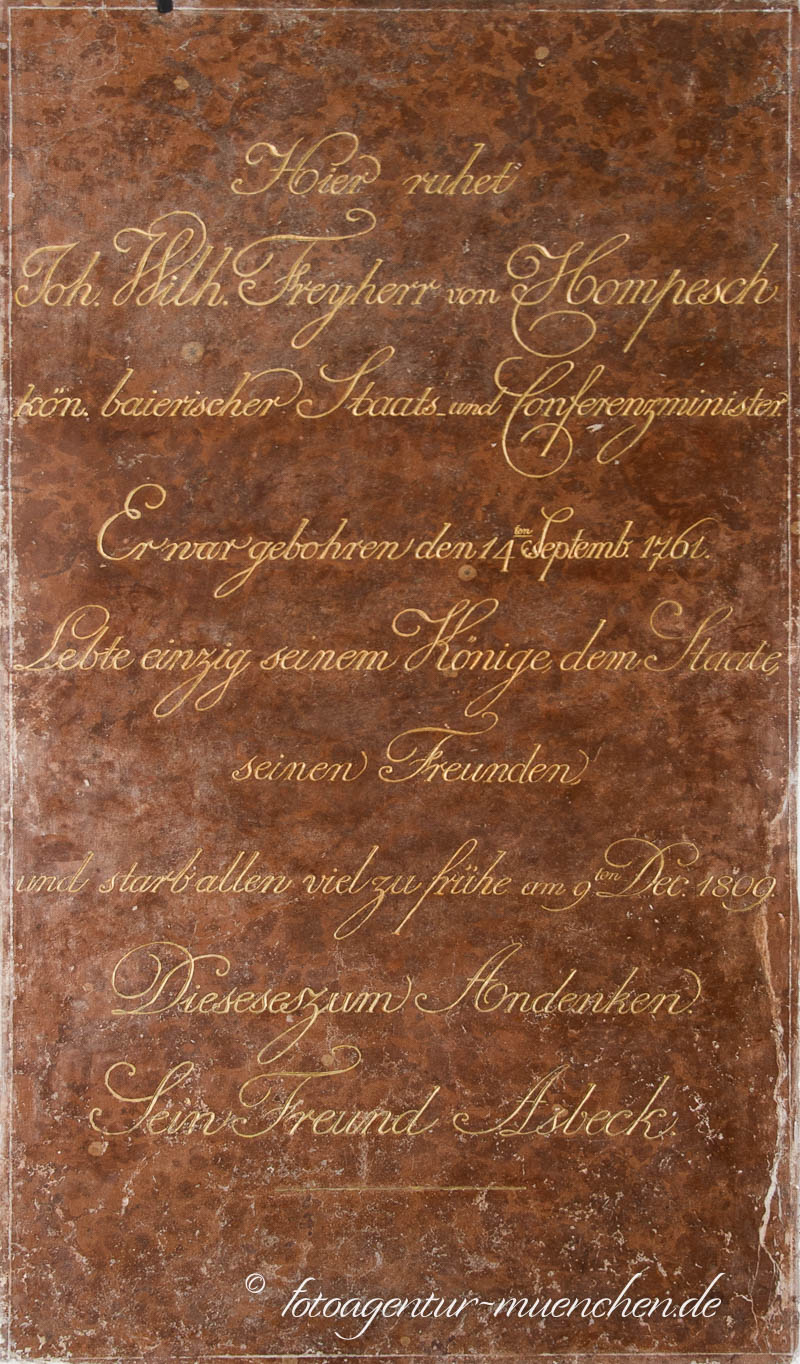 Hier ruhet
Joh. Wilh. Freyherr von Hompesch
kön. baierischer Staats- und Conferenzminister.
Er war gebohren den 14ten Septemb. 1761.
Lebte einzig seinem Könige, dem Staate,
seinen Freunden,
und starb allen viel zu frühe am 9ten Dec: 1809.
Dieseses zum Andenken.
Sein Freund Asbeck.
© fotoagentur-muenchen.de